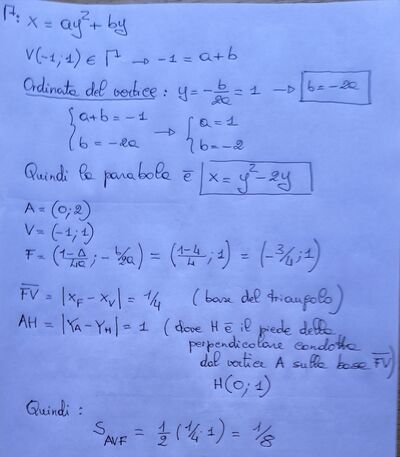 Γ: x = ay² + by
V(-1;1) ∈ Γ → -1 = a+b
Ordinata del vertice: y = -b/2a = 1 → b = -2a
{a+b = -1 → {a = 1
{b = -2a {b = -2
Quindi la parabola è x = y² - 2y
A = (0;2)
V = (-1;1)
F = (1-Δ/4a ; -b/2a) = (1-4/4 ; 1) = (-3/4 ; 1)
FV = |x_F - x_V| = 1/4 (base del triangolo)
AH = |y_A - y_H| = 1 (dove H è il piede della
perpendicolare condotta
dal vertice A sulla base FV)
H(0;1)
Quindi:
S_AVF = 1/2 (1/4·1) = 1/8